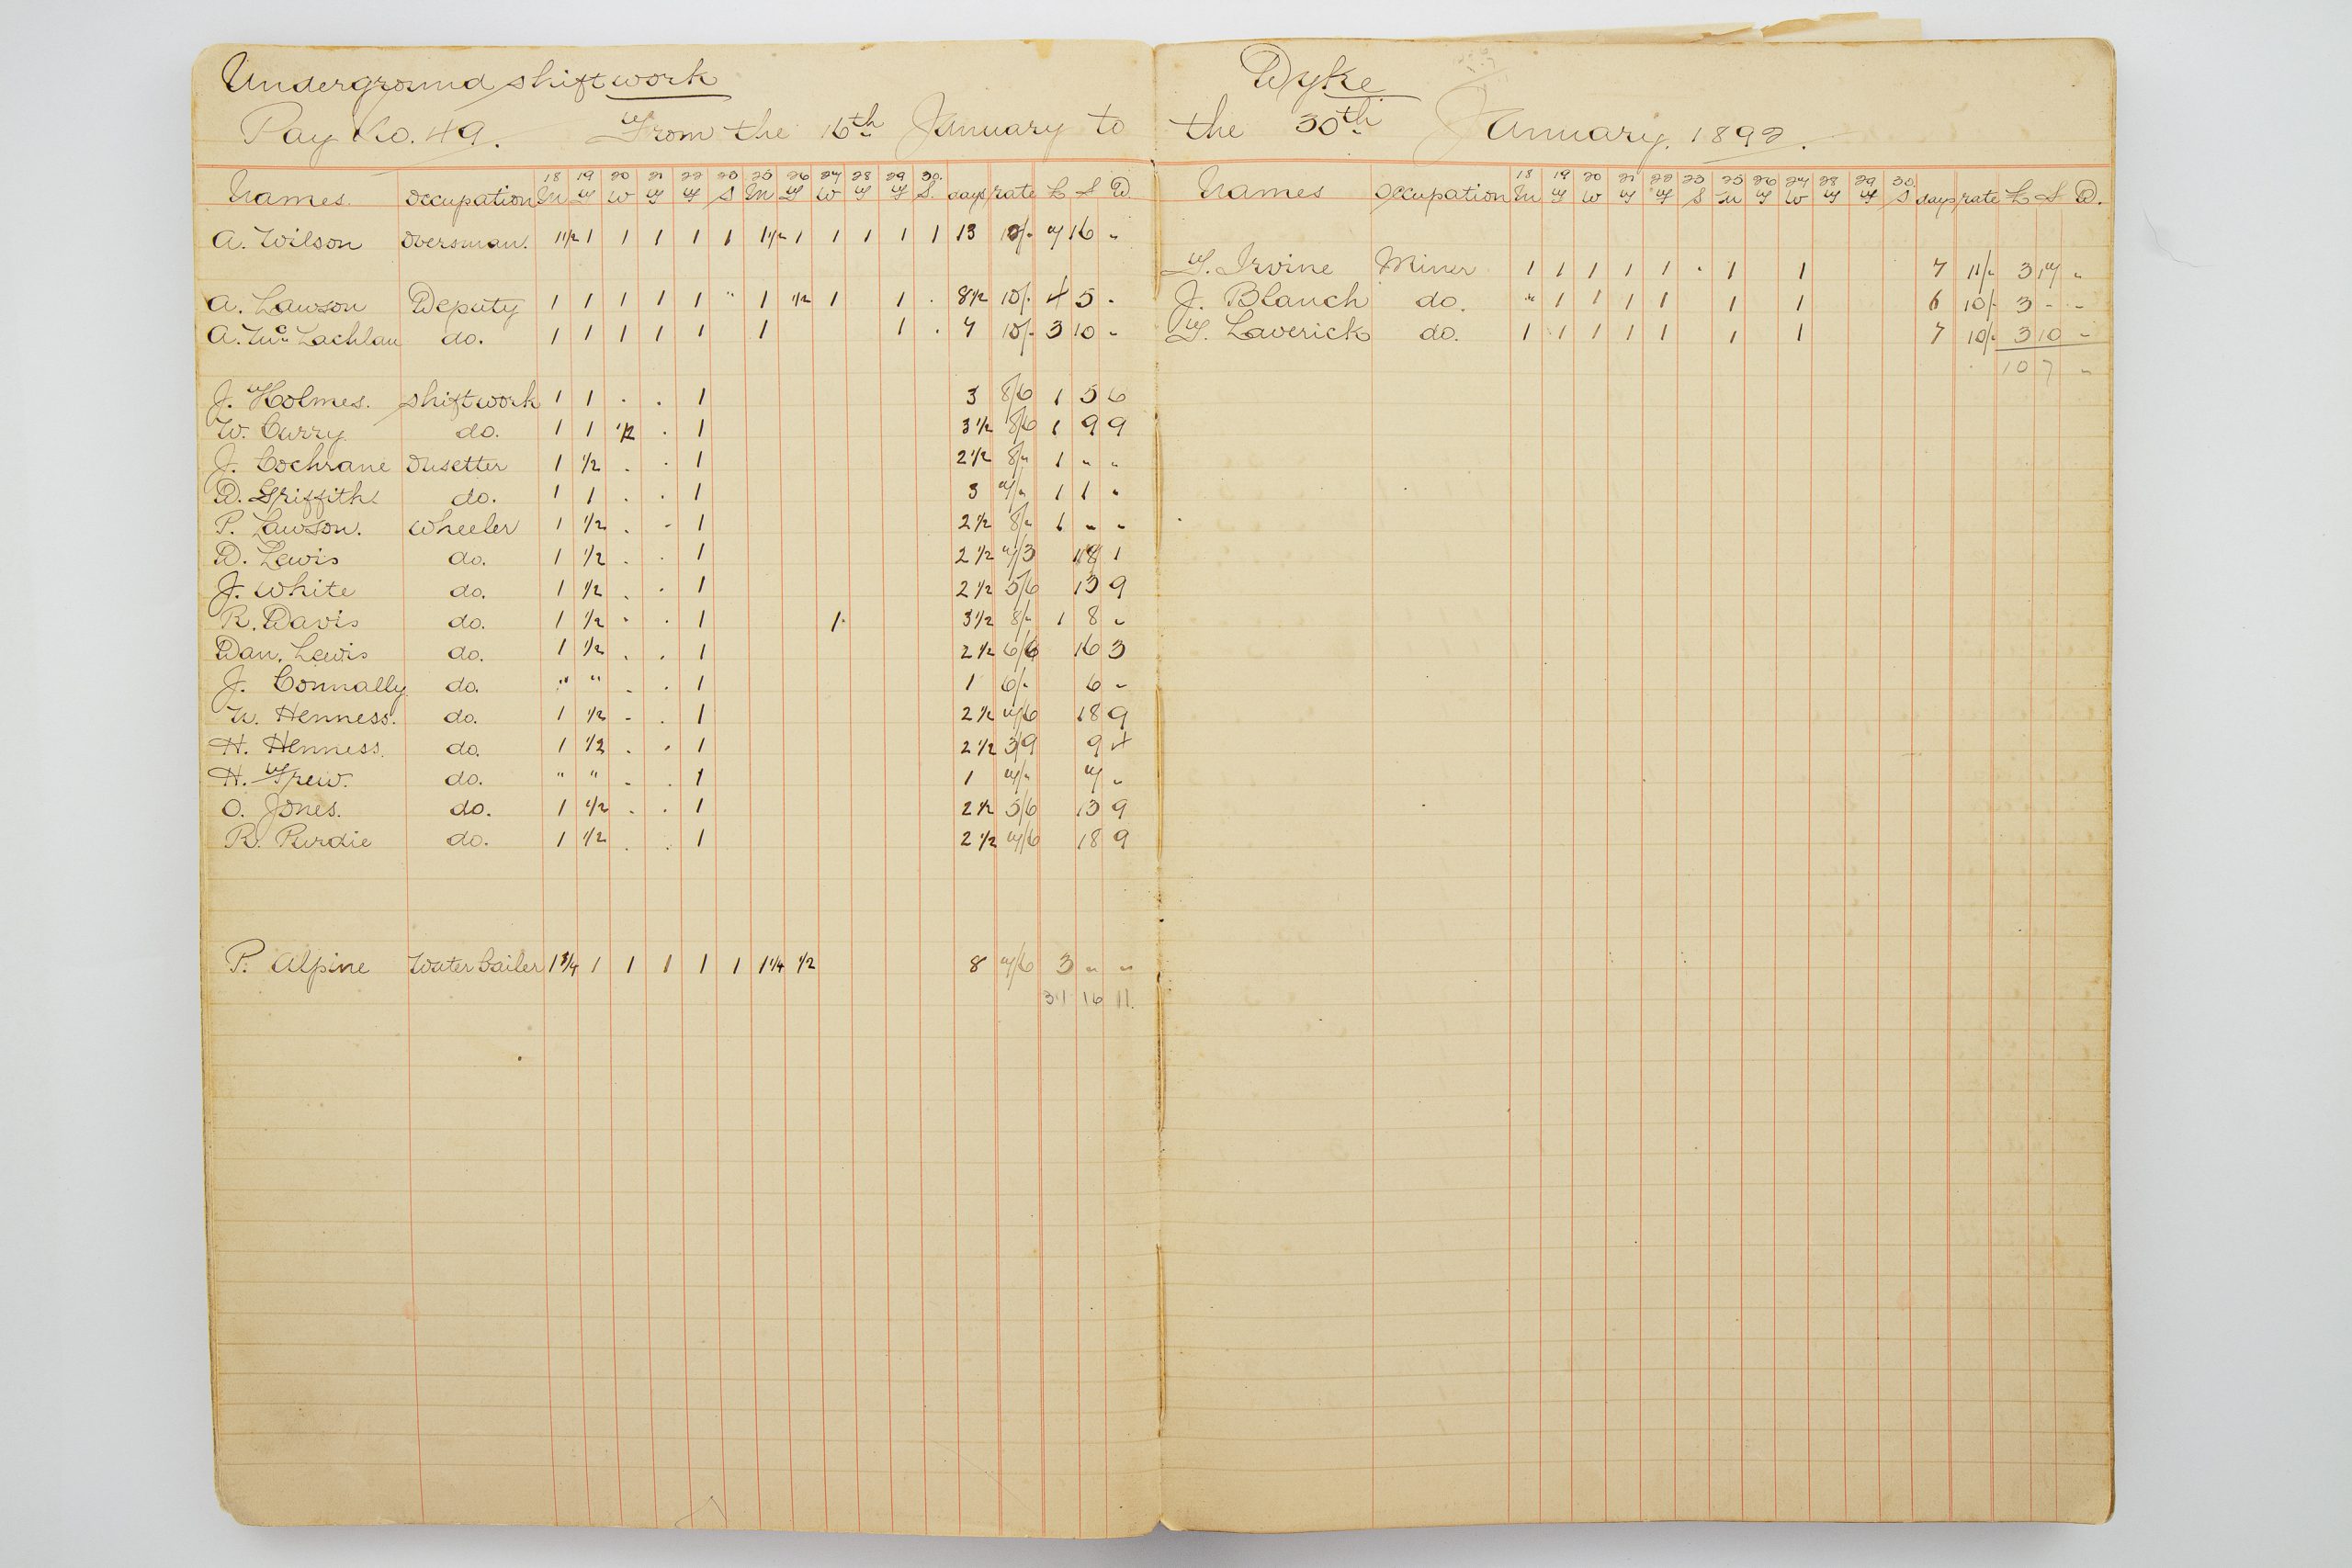 Underground shiftwork
Pay No. 49. From the 16th January to
Names. Occupation 18 M 19 T 20 W 21 T 22 F 23 S 25 M 26 T 27 W 28 T 29 F 30. S. days rate £ S D.
A. Wilson Oversman. 1 1/2 1 1 1 1 1 1 1/2 1 1 1 1 1 13 12/- 7 16 "
A. Lawson Deputy 1 1 1 1 1 " 1 1/2 1 1 . 8 1/2 10/- 4 5 -
A. McLachlan do. 1 1 1 1 1 1 1 . 7 10/- 3 10 -
J. Holmes. shiftwork 1 1 . . 1 3 8/6 1 5 6
W. Curry do. 1 1 1/2 . 1 3 1/2 8/6 1 9 9
J. Cochrane Onsetter 1 1/2 . . 1 2 1/2 8/- 1 " "
D. Griffiths do. 1 1 . . 1 3 7/- 1 1 "
P. Lawson. Wheeler 1 1/2 . - 1 2 1/2 8/- 1 " "
D. Lewis do. 1 1/2 . . 1 2 1/2 7/3 18 1
J. White do. 1 1/2 . . 1 2 1/2 5/6 13 9
R. Davis do. 1 1/2 . . 1 1. 3 1/2 8/- 1 8 "
Dan. Lewis do. 1 1/2 . . 1 2 1/2 6/6 16 3
J. Connally do. " " . . 1 1 6/- 6 "
W. Henness. do. 1 1/2 - . 1 2 1/2 7/6 18 9
H. Henness. do. 1 1/2 . . 1 2 1/2 3/9 9 4
H. Trew. do. " " . . 1 1 7/- 7 "
O. Jones. do. 1 1/2 . . 1 2 1/2 5/6 13 9
R. Purdie do. 1 1/2 . . 1 2 1/2 7/6 18 9
P. Alpine Water bailer 1 3/4 1 1 1 1 1 1 1/4 1/2 8 7/6 3 " "
31 16 11.
Dyke
the 30th January. 1892.
Names Occupation 18 M 19 T 20 W 21 T 22 F 23 S 25 M 26 T 27 W 28 T 29 F 30. S days rate £ S D.
T. Irvine Miner 1 1 1 1 1 . 1 1 7 11/- 3 17 "
J. Blanch do. " 1 1 1 1 1 1 6 10/- 3 - -
T. Laverick do. 1 1 1 1 1 1 1 7 10/- 3 10 -
10 7 "